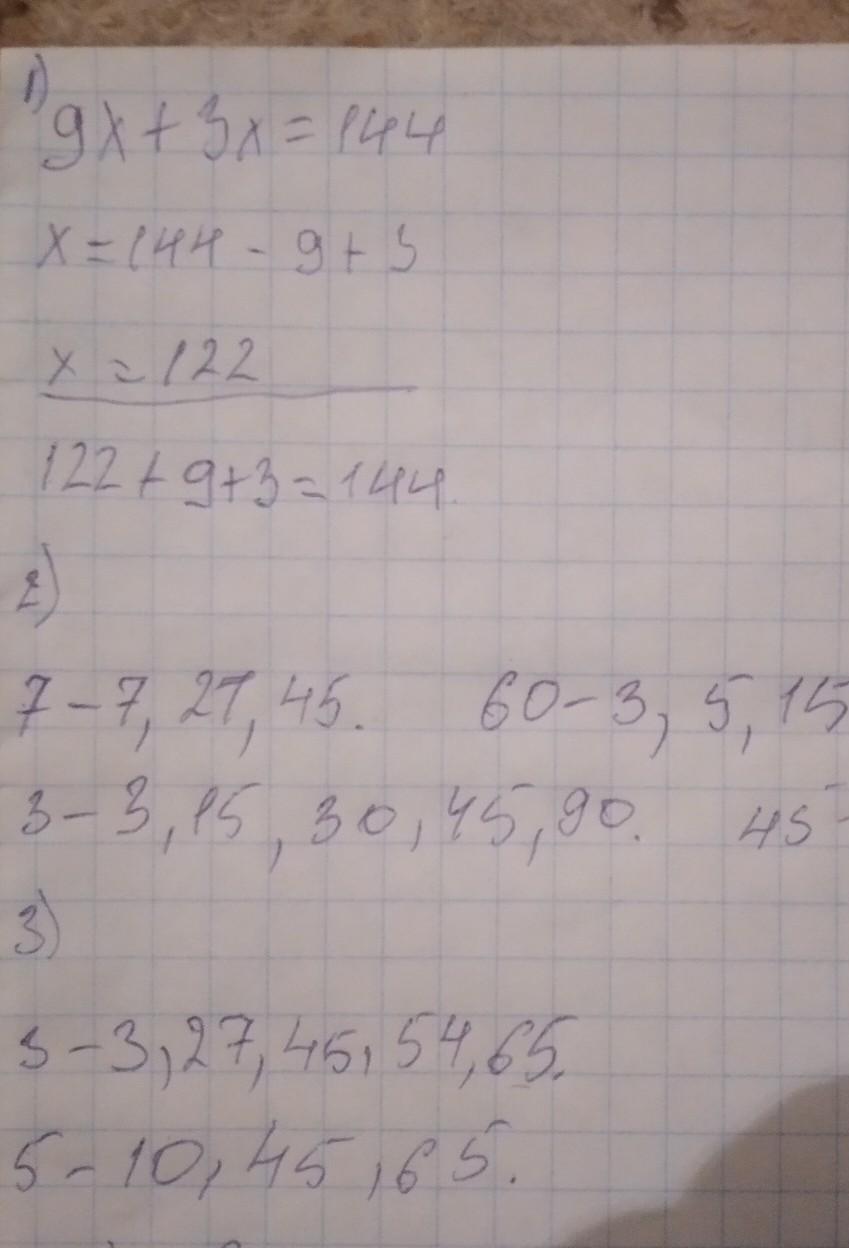 1)
9x + 3x = 144
x = 144 - 9 + 3
x = 122
122 + 9 + 3 = 144.
2)
7 - 7, 21, 45. 60 - 3, 5, 15
3 - 3, 15, 30, 45, 90. 45 -
3)
3 - 3, 27, 45, 54, 65.
5 - 10, 45, 65.